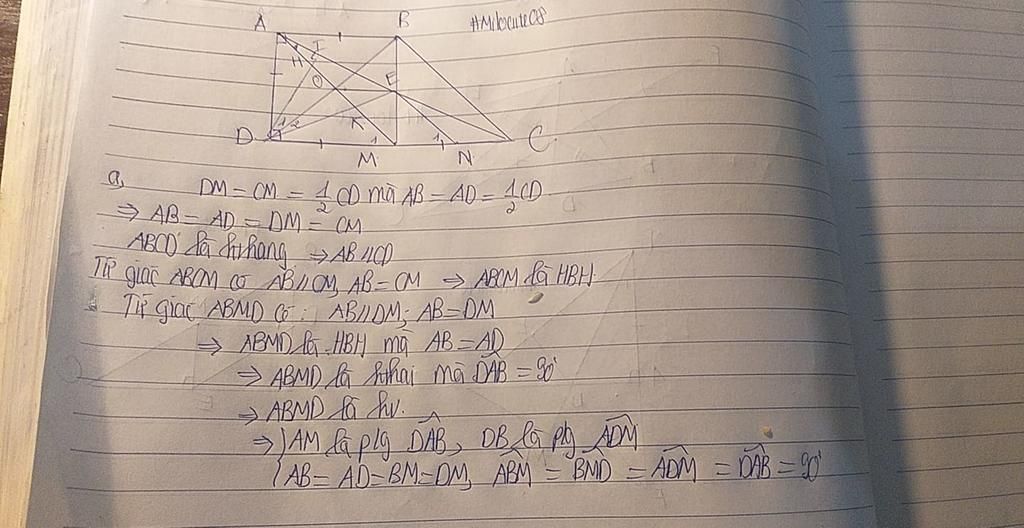 A B #Milocute08
H I
O E
D 1 2 K 1 1 C
M N
a, DM = CM = 1/2 CD mà AB = AD = 1/2 CD
⇒ AB = AD = DM = CM
ABCD là hthang ⇒ AB // CD
Tứ giác ABCM có AB // CM, AB = CM ⇒ ABCM là HBH
Tứ giác ABMD có: AB // DM; AB = DM
⇒ ABMD là HBH mà AB = AD
⇒ ABMD là hthoi mà DAB = 90°
⇒ ABMD là hv.
⇒ AM là p/g DAB, DB là p/g ADM
AB = AD = BM = DM, ABM = BMD = ADM = DAB = 90°